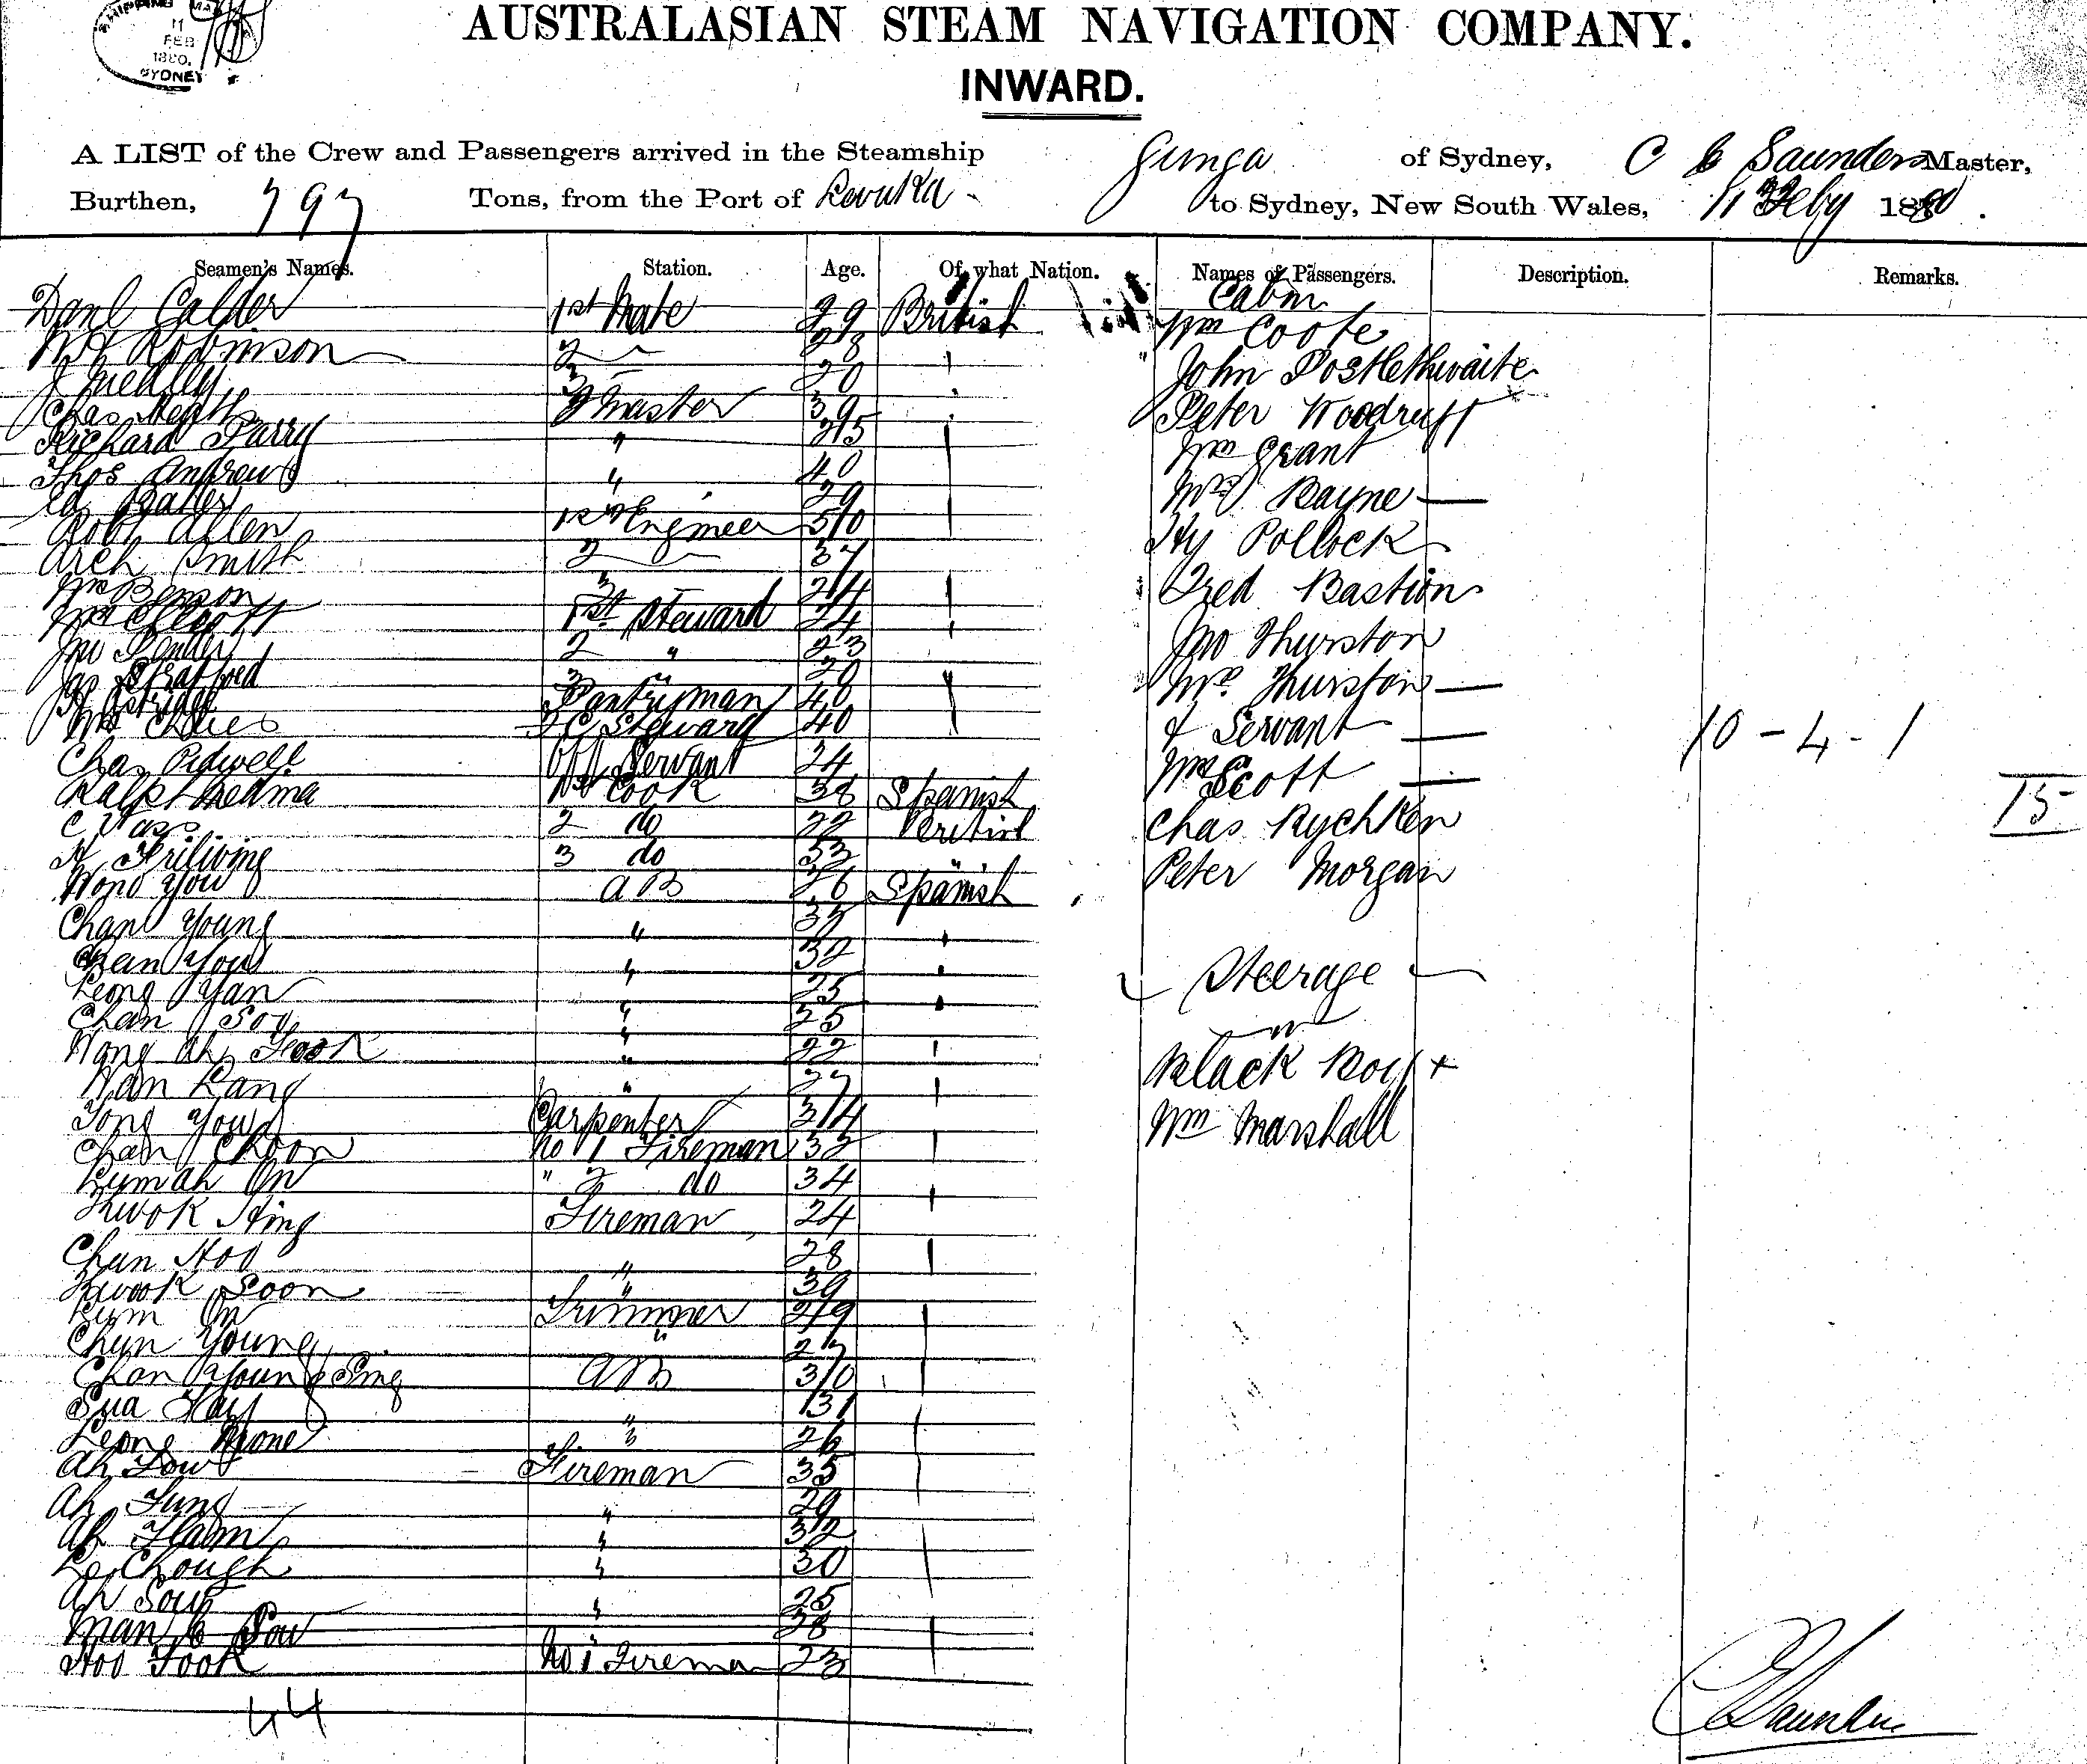 SHIPPING MA
11
FEB
1880.
SYDNEY
AUSTRALASIAN STEAM NAVIGATION COMPANY.
INWARD.
A LIST of the Crew and Passengers arrived in the Steamship Gunga of Sydney, C Saunders Master,
Burthen, 797 Tons, from the Port of Levuka to Sydney, New South Wales, 11 Feby 1880.
Seamen's Names. Station. Age. Of what Nation. Names of Passengers. Description. Remarks.
Cabin
Danl Calder 1st Mate 29 British Wm Coote
Robinson 2 28 John Postlethwaite
J Medley 3 20
Chas Heath 2 Master 39 Peter Woodruff
Richard Parry " 25 Wm Grant
Thos Andrews " 40 Mrs Bayne —
29
Robt Allen 1st Engineer 50 Hy Pollock
Arch Smith 2 37
Wm Benson 3 24 Fred Bastion
1st Steward 24
Jno 2 " 23 Jno Thurston
Jas 3 " 20 Mrs Thurston —
Pantryman 40
Steward 40 & Servant —
10 - 4 - 1
Chas Pidwell Servant 24 Scott —
Ralph Medma 1st Cook 38 Spanish
15
C 2 do 22 British Chas Rychken
3 do 33 " Peter Morgan
Wong You AB 26 Spanish
Chan Young " 35
Chan You " 32 Steerage
Leong Yan " 25
Chan Soy " 25
Wong Ah " 22 Black Boy +
Wan Kang " 27
Tong You Carpenter 34 Wm Marshall
Chan Choon No 1 Fireman 32
Lymah On " 2 do 34
Kwok Hing Fireman 24
Chun Hoo " 28
Kwook Soon " 39
Lym On Trimmer 29
Chun Young " 27
Chan Young Sing AB 30
Sua " 31
Leong " 26
Ah Low Fireman 35
Ah Fung " 29
Ah Ham " 32
Chough " 30
Ah Soup " 25
Man " 28
Hoo Fook No 1 Fireman 23
44
C Saunders